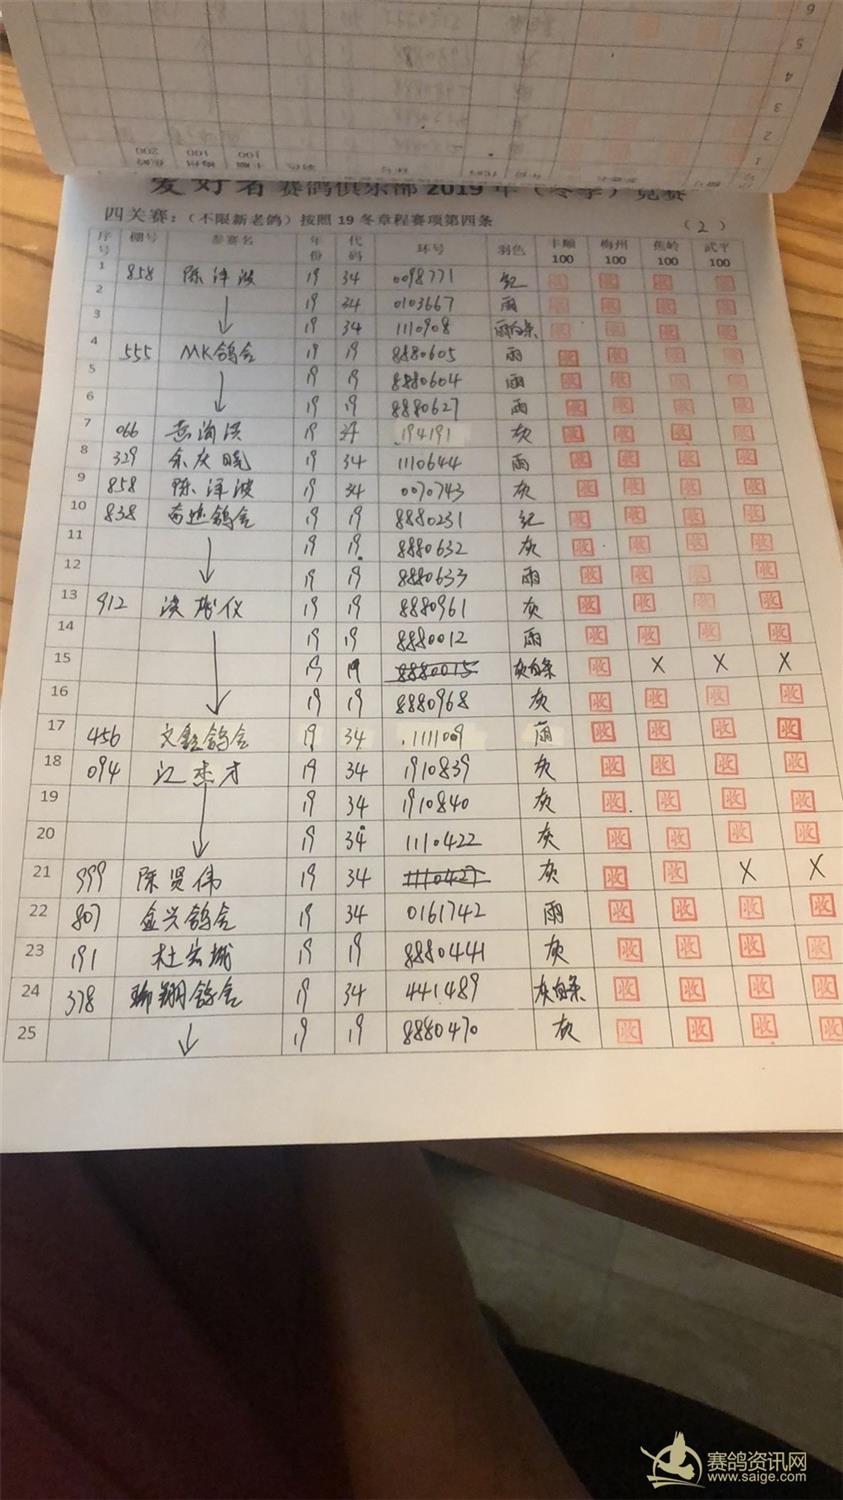 爱好者赛鸽俱乐部2019年（冬季）竞赛
四关赛：（不限新老鸽）按照19冬章程赛项第四条 （2）
序号 棚号 参赛名 年份 代码 环号 羽色 丰顺100 梅州100 蕉岭100 武平100
1 858 陈泽波 19 34 0098771 红 收 收 收 收
2 19 34 0103667 雨 收 收 收 收
3 19 34 1110908 雨白条 收 收 收 收
4 555 MK鸽舍 19 19 8880605 雨 收 收 收 收
5 19 19 8880604 雨 收 收 收 收
6 19 19 8880627 雨 收 收 收 收
7 066 19 34 194191 灰 收 收 收 收
8 329 余庆晓 19 34 1110644 雨 收 收 收 收
9 858 陈泽波 19 34 0070743 灰 收 收 收 收
10 838 鸽舍 19 19 8880231 红 收 收 收 收
11 19 19 8880632 灰 收 收 收 收
12 19 19 8880633 雨 收 收 收 收
13 912 19 19 8880961 灰 收 收 收 收
14 19 19 8880012 雨 收 收 收 收
15 19 19 8880015 灰白条 收 X X X
16 19 19 8880968 灰 收 收 收 收
17 456 文鑫鸽舍 19 34 1111109 雨 收 收 收 收
18 094 江杰才 19 34 1910839 灰 收 收 收 收
19 19 34 1910840 灰 收 收 收 收
20 19 34 1110422 灰 收 收 收 收
21 999 陈贤伟 19 34 1110427 灰 收 收 X X
22 807 金兴鸽舍 19 34 0161742 雨 收 收 收 收
23 191 杜尖城 19 19 8880441 灰 收 收 收 收
24 378 翔鸽舍 19 34 441489 灰白条 收 收 收 收
25 19 19 8880470 灰 收 收 收 收
赛鸽资讯网
www.saige.com